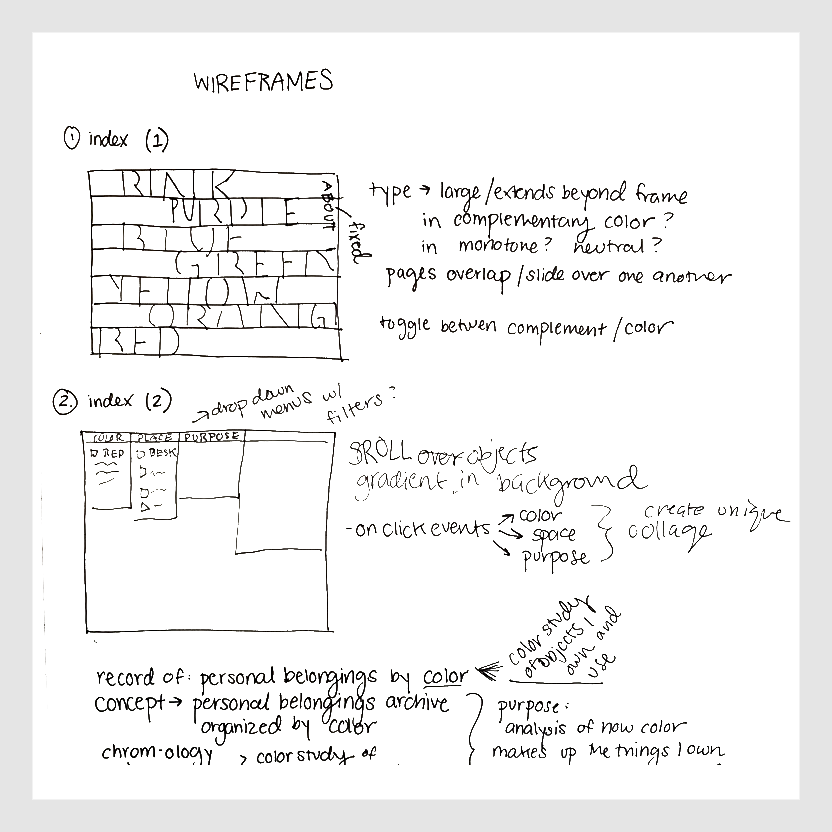 WIREFRAMES
① index (1)
PINK
PURPLE
BLUE
GREEN
YELLOW
ORANG
RED
ABOUT
fixed
type → large/extends beyond frame
in complementary color?
in monotone? neutral?
pages overlap/slide over one another
toggle betwen complement/color
② index (2)
→ drop down
menus w/
filters?
COLOR PLACE PURPOSE
RED DESK
SROLL over objects
gradient in background
- on click events → color
→ space
→ purpose
create unique
collage
color study
of objects I
own and
use
record of: personal belongings by color
concept → personal belongings archive
organized by color
chrom-ology > color study of
purpose:
analysis of how color
makes up the things I own